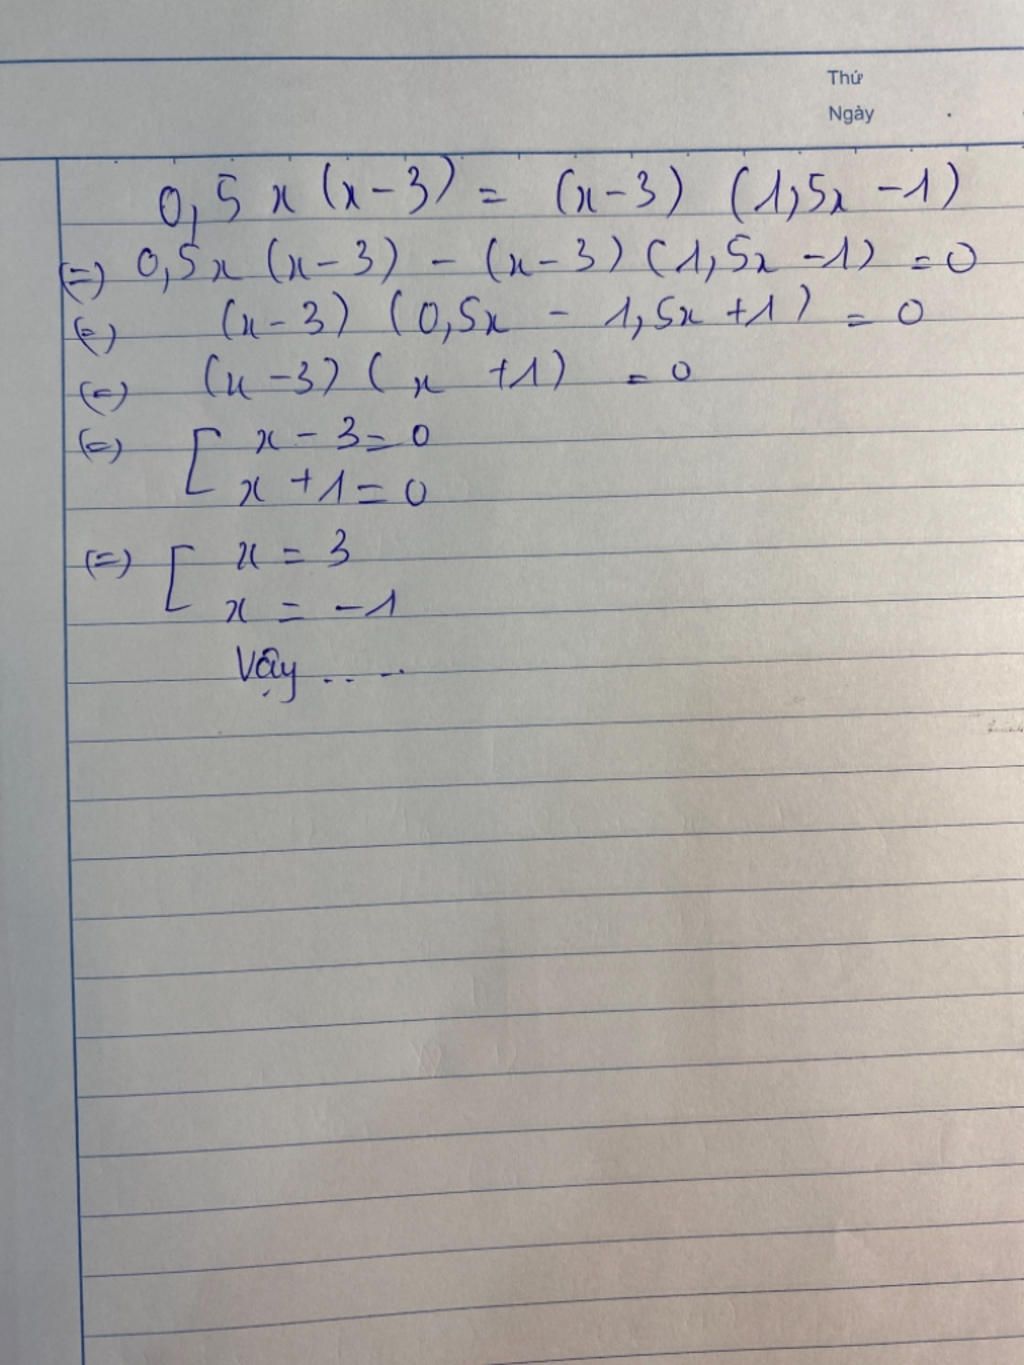 Thứ
Ngày
0,5x(x-3) = (x-3) (1,5x -1)
(=) 0,5x (x-3) - (x-3) (1,5x -1) = 0
(=) (x-3) (0,5x - 1,5x +1) = 0
(=) (x-3) ( x +1) = 0
(=) [ x - 3 = 0
x + 1 = 0
(=) [ x = 3
x = -1
Vậy ....